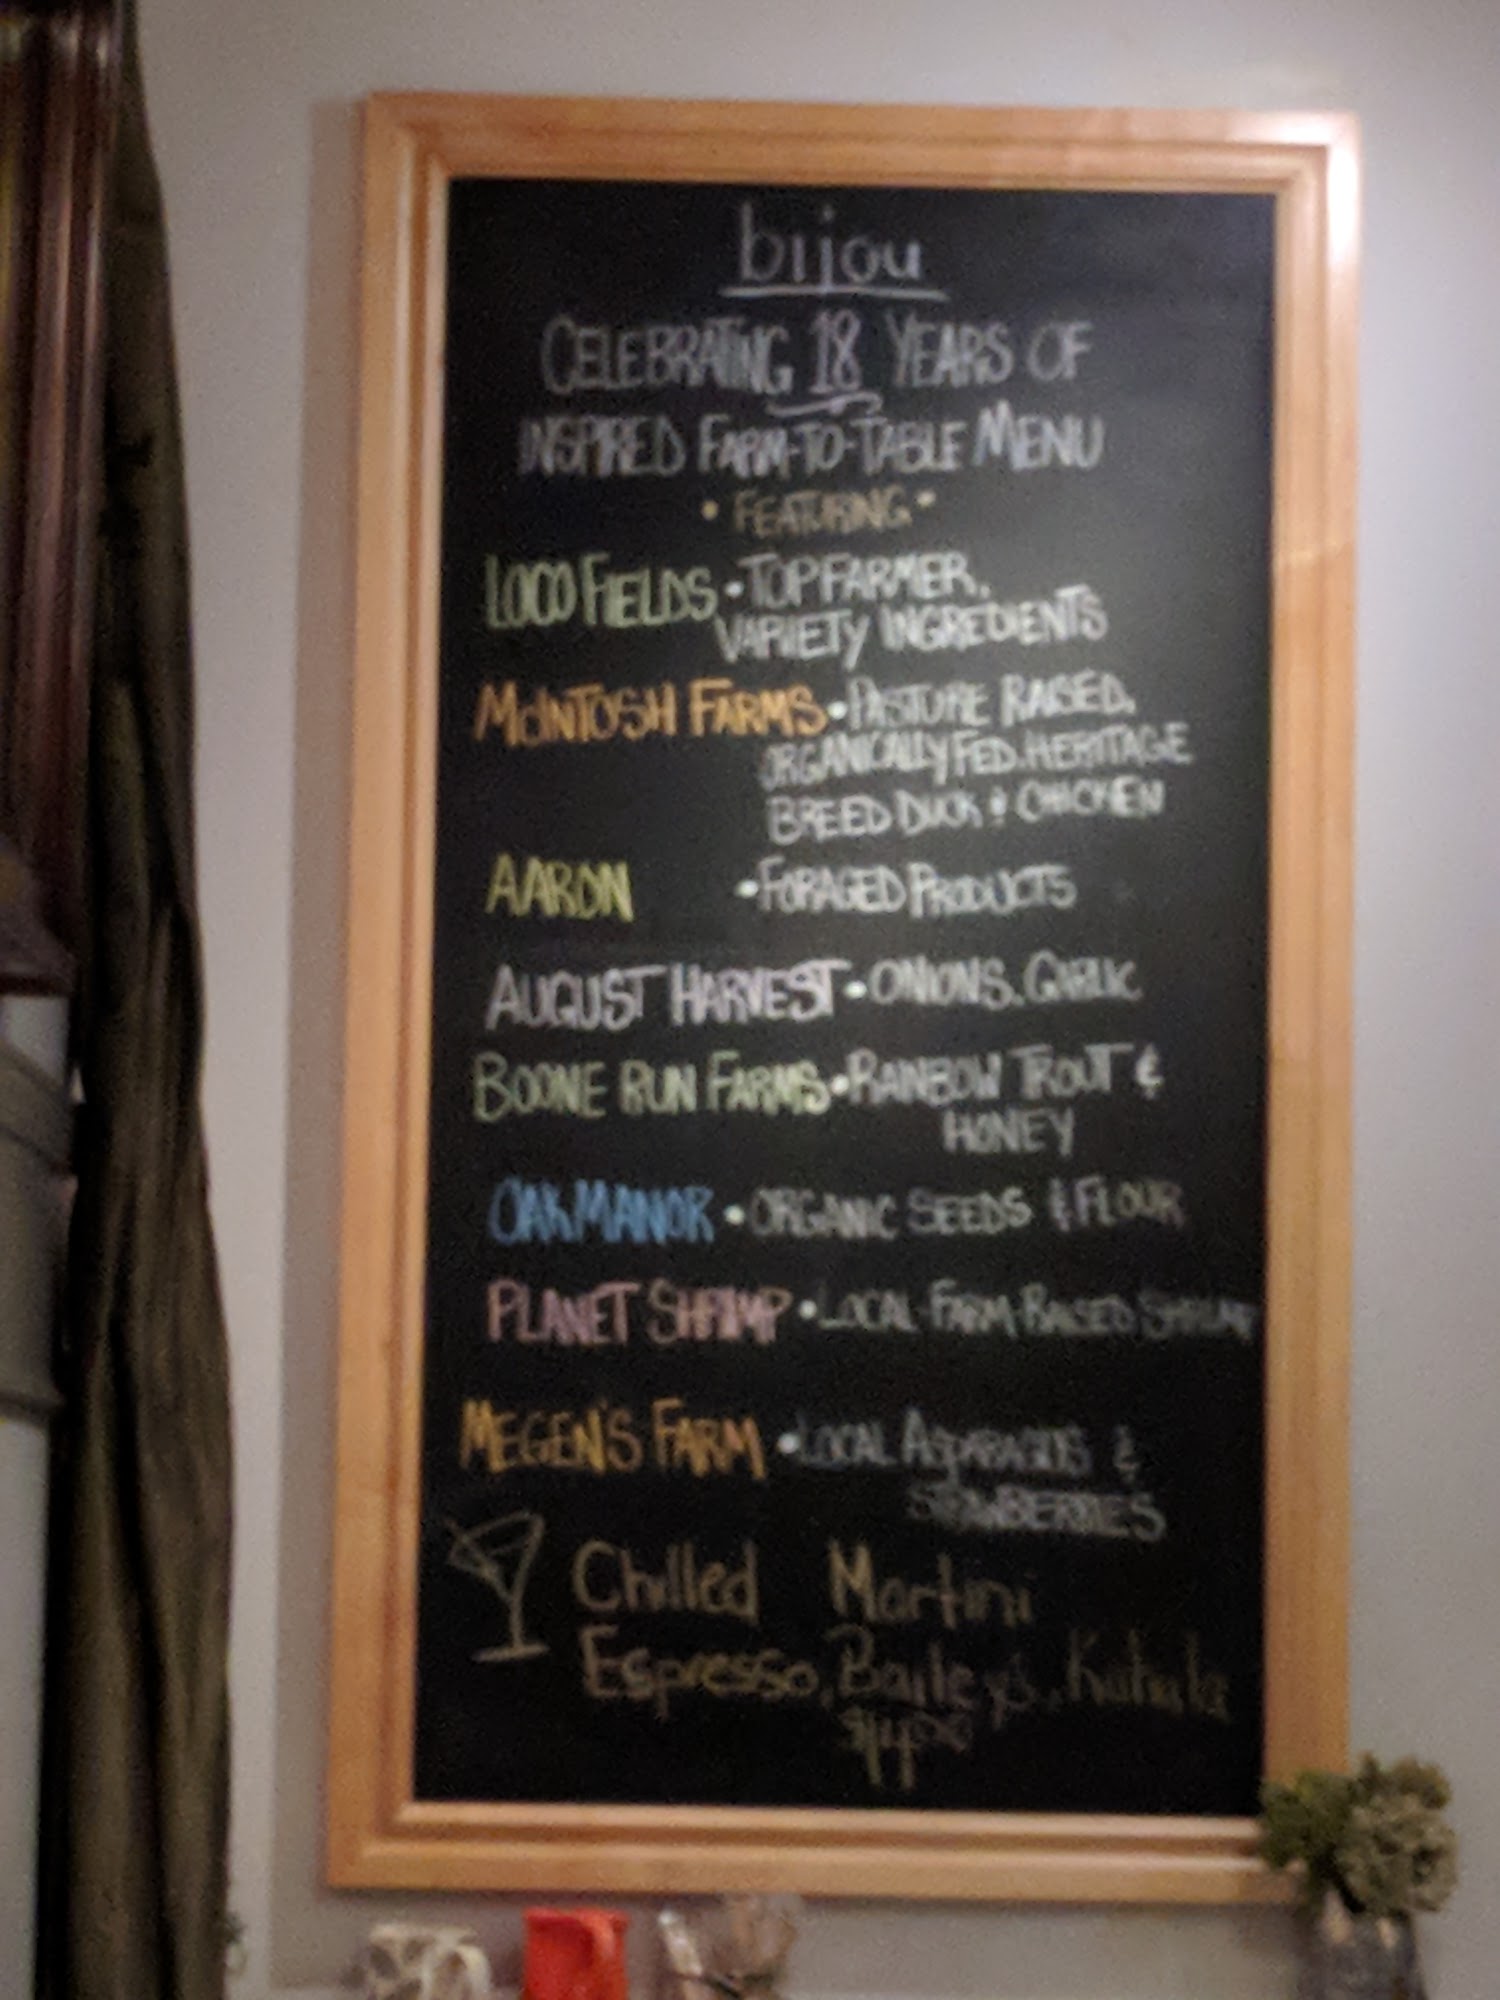 bijou
CELEBRATING 18 YEARS OF
INSPIRED FARM-TO-TABLE MENU
• FEATURING •
LOCO FIELDS • TOP FARMER,
VARIETY INGREDIENTS
MCINTOSH FARMS • PASTURE RAISED,
ORGANICALLY FED, HERITAGE
BREED DUCK & CHICKEN
AARON • FORAGED PRODUCTS
AUGUST HARVEST • ONIONS, GARLIC
BOONE RUN FARMS • RAINBOW TROUT &
HONEY
OAK MANOR • ORGANIC SEEDS & FLOUR
PLANET SHRIMP • LOCAL FARM-RAISED SHRIMP
MEGEN'S FARM • LOCAL ASPARAGUS &
STRAWBERRIES
Chilled Martini
Espresso, Bailey's, Kahula